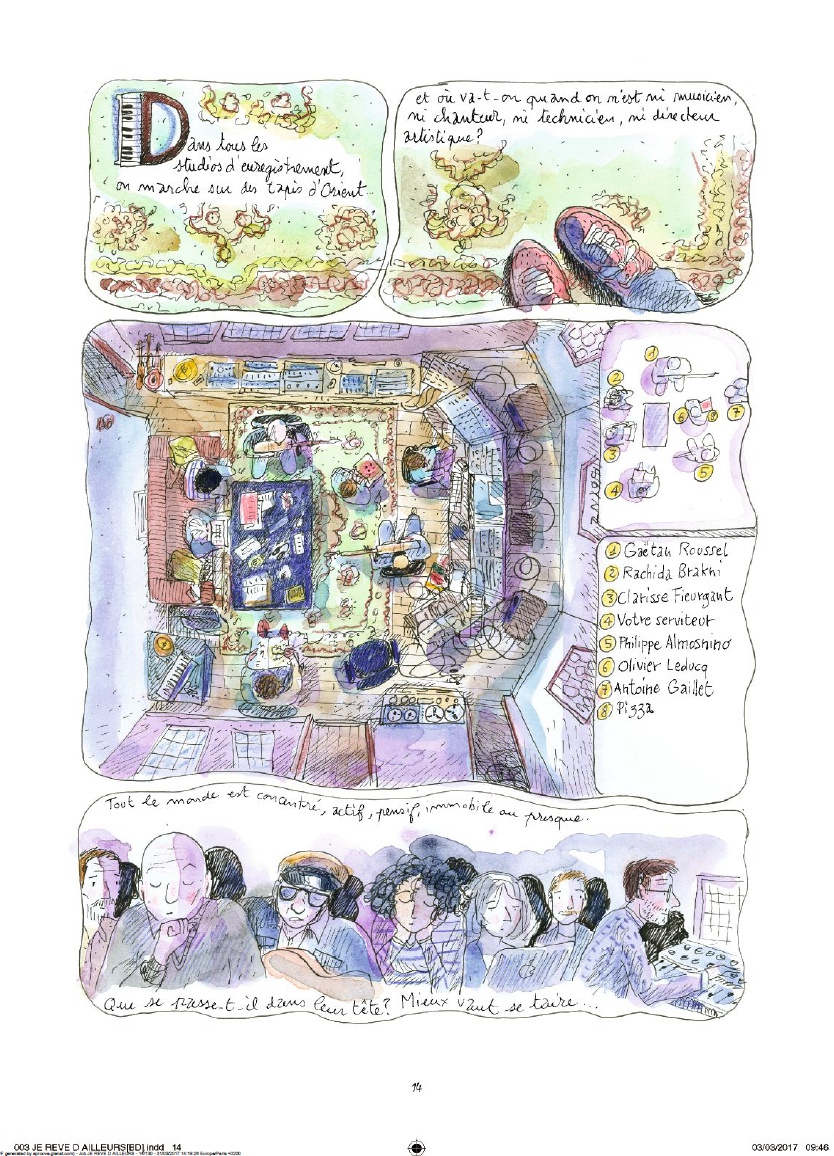 Dans tous les
studios d'enregistrement,
on marche sur des tapis d'Orient
et où va-t-on quand on n'est ni musicien,
ni chanteur, ni technicien, ni directeur
artistique?
1
2
3
4
5
6
8
7
1 Gaëtan Roussel
2 Rachida Brakni
3 Clarisse Fieurgant
4 Votre serviteur
5 Philippe Almosnino
6 Olivier Leducq
7 Antoine Gaillet
8 Pizza
Tout le monde est concentré, actif, pensif, immobile ou presque.
Que se passe-t-il dans leur tête? Mieux vaut se taire...
14
003 JE REVE D AILLEURS[BD].indd 14
03/03/2017 09:46